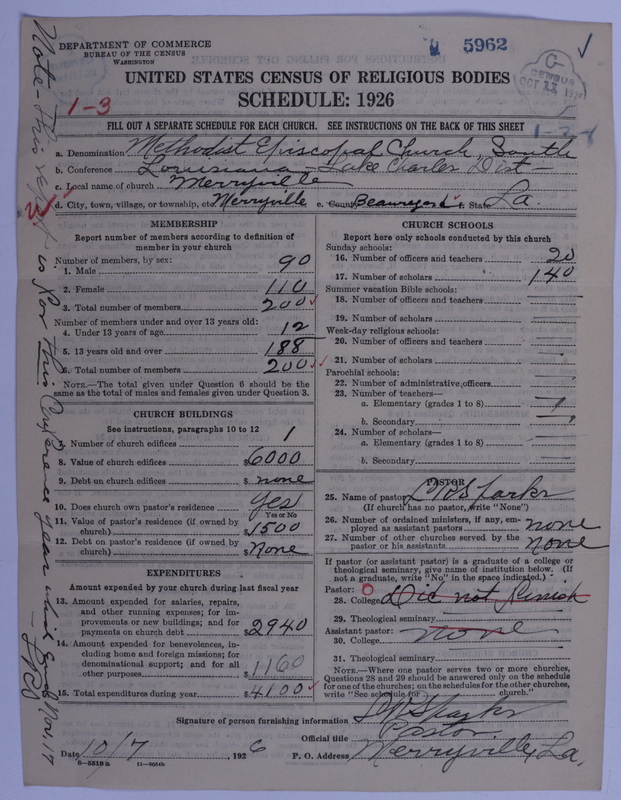 DEPARTMENT OF COMMERCE
BUREAU OF THE CENSUS
WASHINGTON
5962
CENSUS
OCT 11
UNITED STATES CENSUS OF RELIGIOUS BODIES
SCHEDULE: 1926
1-3
FILL OUT A SEPARATE SCHEDULE FOR EACH CHURCH. SEE INSTRUCTIONS ON THE BACK OF THIS SHEET
a. Denomination Methodist Episcopal Church, South
b. Conference Louisiana - Lake Charles Dist -
c. Local name of church Merryville
d. City, town, village, or township, etc. Merryville e. County Beauregard f. State La.
MEMBERSHIP
Report number of members according to definition of
member in your church
Number of members, by sex:
1. Male 90
2. Female 110
3. Total number of members 200
Number of members under and over 13 years old:
4. Under 13 years of age 12
5. 13 years old and over 188
6. Total number of members 200
NOTE.—The total given under Question 6 should be the
same as the total of males and females given under Question 3.
CHURCH BUILDINGS
See instructions, paragraphs 10 to 12
7. Number of church edifices 1
8. Value of church edifices $6000
9. Debt on church edifices $ none
10. Does church own pastor's residence? Yes
Yes or No
11. Value of pastor's residence (if owned by
church) $1500
12. Debt on pastor's residence (if owned by
church) $None
EXPENDITURES
Amount expended by your church during last fiscal year
13. Amount expended for salaries, repairs,
and other running expenses; for im-
provements or new buildings; and for
payments on church debt $2940
14. Amount expended for benevolences, in-
cluding home and foreign missions; for
denominational support; and for all
other purposes $1160
15. Total expenditures during year $4100
CHURCH SCHOOLS
Report here only schools conducted by this church
Sunday schools:
16. Number of officers and teachers 20
17. Number of scholars 140
Summer vacation Bible schools:
18. Number of officers and teachers
19. Number of scholars
Week-day religious schools:
20. Number of officers and teachers
21. Number of scholars
Parochial schools:
22. Number of administrative officers
23. Number of teachers—
a. Elementary (grades 1 to 8)
b. Secondary
24. Number of scholars—
a. Elementary (grades 1 to 8)
b. Secondary
PASTOR
25. Name of pastor Sparks
(If church has no pastor, write "None")
26. Number of ordained ministers, if any, em-
ployed as assistant pastors none
27. Number of other churches served by the
pastor or his assistants none
If pastor (or assistant pastor) is a graduate of a college or
theological seminary, give name of institution below. (If
not a graduate, write "No" in the space indicated.)
Pastor:
28. College Did not finish
29. Theological seminary
Assistant pastor: none
30. College
31. Theological seminary
NOTE.—Where one pastor serves two or more churches,
Questions 28 and 29 should be answered only on the schedule
for one of the churches; on the schedules for the other churches,
write "See schedule for church."
Signature of person furnishing information Sparks
Official title Pastor
Date 10/7, 1926 P. O. Address Merryville, La.
Note - This rept is for this Conference year which ends Nov. 17